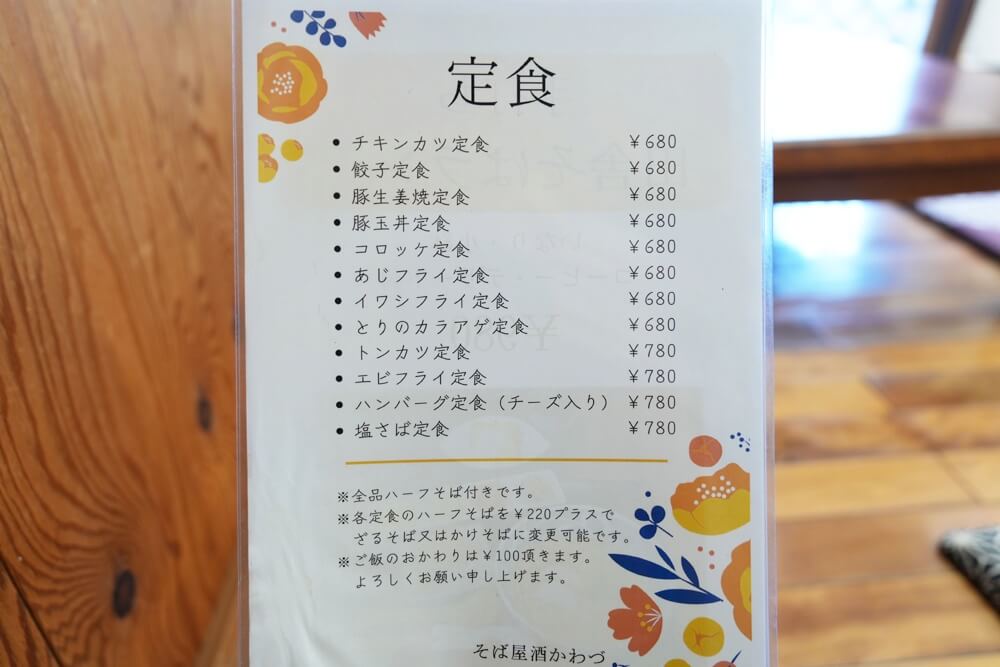 定食
• チキンカツ定食 ￥680
• 餃子定食 ￥680
• 豚生姜焼定食 ￥680
• 豚玉丼定食 ￥680
• コロッケ定食 ￥680
• あじフライ定食 ￥680
• イワシフライ定食 ￥680
• とりのカラアゲ定食 ￥680
• トンカツ定食 ￥780
• エビフライ定食 ￥780
• ハンバーグ定食（チーズ入り） ￥780
• 塩さば定食 ￥780
※全品ハーフそば付きです。
※各定食のハーフそばを￥220プラスで
ざるそば又はかけそばに変更可能です。
※ご飯のおかわりは￥100頂きます。
よろしくお願い申し上げます。
そば屋酒かわづ